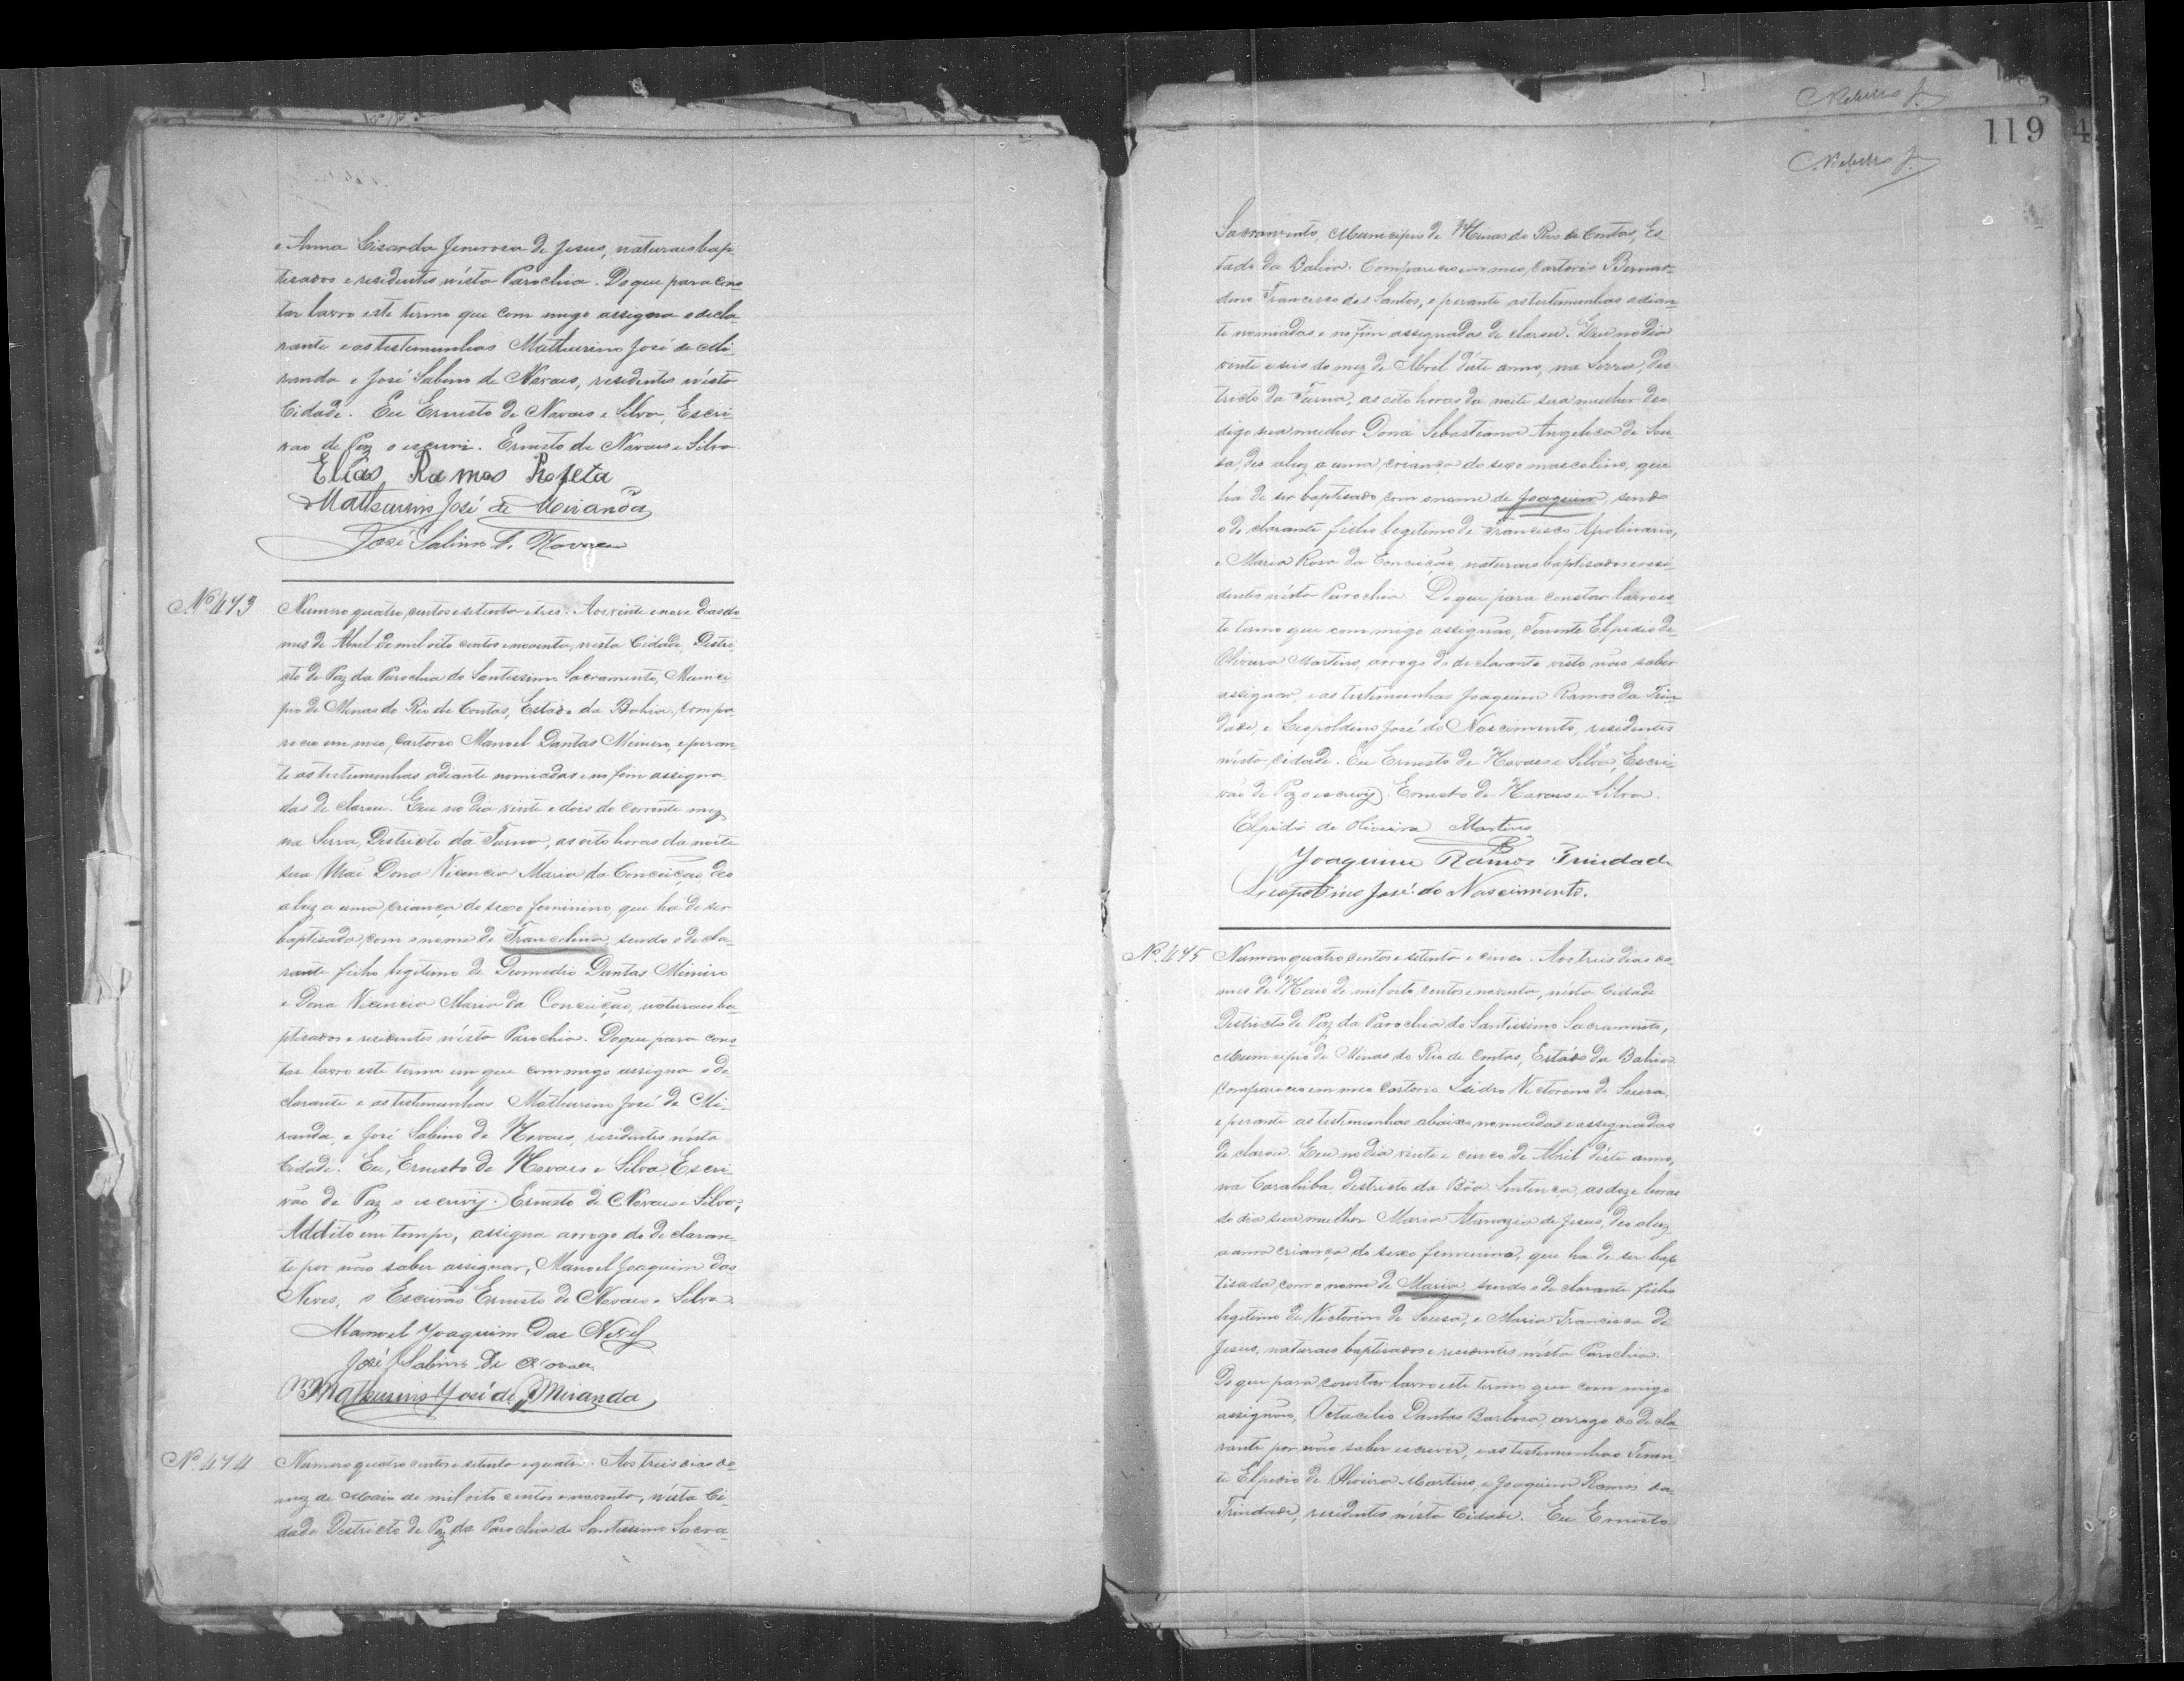 e Anna Cisarda Generosa de Jesus, naturaes bap-
tisados e residentes n'ésta Parochia. Do que para cons-
tar lavro este termo que com migo assigna o decla-
rante e as testemunhas Mathurino José de Mi-
randa e José Sabino de Novaes, residentes n'ésta
Cidade. Eu Ernesto de Novaes e Silva, Escri-
vão de Paz o escrevi. Ernesto de Novaes e Silva
Elias Ramos Profeta
Mathurino José de Miranda
José Sabino F. Novaes
Nº 473
Numero quatro centos e setenta e tres. Aos vinte e nove dias do
mes de Abril de mil oito centos e noventa, nesta Cidade, Distri-
cto de Paz da Parochia do Santissimo Sacramento, Munici-
pio de Minas do Rio de Contas, Estado da Bahia, Compa-
receo em meo Cartorio Manoel Dantas Mineiro, e peran-
te as testemunhas adiante nomiadas e no fim assigna-
das declarou. Que no dia vinte e dois do corrente mez
na Serra, Districto da Furna, as oito horas da noite
sua Mãi Dona Vicencia Maria da Conceição, deo
a luz a uma criança do sexo feminino, que há de ser
baptisada com o nome de Francelina, sendo o decla-
rante filho legitimo de Diomedio Dantas Mineiro
e Dona Vicencia Maria da Conceição, naturaes ba-
ptisados e residentes n'ésta Parochia. Do que para cons-
tar lavro este termo em que com migo assigna o de-
clarante e as testemunhas Mathurino José de Mi-
randa, e José Sabino de Novaes, residentes n'ésta
Cidade. Eu, Ernesto de Novaes e Silva Escri-
vão de Paz o escrevy. Ernesto de Novaes e Silva,
Addito em tempo, assigna arrogo do declaran-
te por não saber assignar, Manoel Joaquim das
Neves, o Escrivão Ernesto de Novaes e Silva.
Manoel Joaquim das Neves
José Sabino de Novaes
Mathurino José de Miranda
Nº 474
Numero quatro centos e setenta e quatro. Aos treis dias do
mez de Maio de mil oito centos e noventa, n'ésta Ci-
dade Districto de Paz da Parochia do Santissimo Sacra-
119
Sacramento, Municipio de Minas do Rio de Contas, Es-
tado da Bahia. Compareceo em meo Cartorio Bernar-
dino Francisco dos Santos, e perante as testemunhas adian-
te nomiadas e no fim assignadas declarou. Que no dia
vinte e seis do mez de Abril d'éste anno, na Serra, Des-
tricto da Furna, as oito horas da noite sua mulher deo
digo sua mulher Dona Sebastiana Angelica de Sou-
sa, deo aluz a uma criança do sexo mascolino, que
ha de ser baptisado com o nome de Joaquim, sendo
o declarante filho legitimo de Francisco Apolinario,
e Maria Rosa da Conceição, naturaes baptisados e resi-
dentes n'ésta Parochia. Do que para constar lavro es-
te termo que com migo assignão, Tenente Elpidio de
Oliveira Martins, arrogo do declarante visto não saber
assignar, e as testemunhas Joaquim Ramos da Trin-
dade, e Leopoldino José do Nascimento, residentes
n'ésta cidade. Eu Ernesto de Novaes e Silva, Escri-
vão de Paz o escrevy. Ernesto de Novaes e Silva.
Elpidio de Oliveira Martins
Joaquim Ramos Trindade
Leopoldino José do Nascimento.
Nº 475
Numero quatro centos e setenta e cinco. Aos treis dias do
mes de Maio de mil oito centos e noventa, n'ésta Cidade
Districto de Paz da Parochia do Santissimo Sacramento,
Municipio de Minas do Rio de Contas, Estado da Bahia
Compareceo em meo Cartorio Isidro Victorino de Sousa,
e perante as testemunhas abaixo nomiadas e assignadas
declarou. Que no dia vinte e cinco de Abril d'éste anno,
na Carahiba, districto da Bôa Sentença, as doze horas
do dia sua mulher Maria Atanazia de Jesus, deo aluz
a uma criança do sexo femenino, que ha de ser bap-
tisada com o nome de Maria, sendo o declarante filho
legitimo de Victorino de Sousa, e Maria Francisca de
Jesus, naturaes baptisados e residentes n'ésta Parochia.
Do que para constar lavro este termo que com migo
assignão, Octacilio Dantas Barbosa, arrogo do decla-
rante por não saber escrever, e as testemunhas Tenen-
te Elpidio de Oliveira Martins, e Joaquim Ramos da
Trindade, residentes n'ésta Cidade. Eu Ernesto